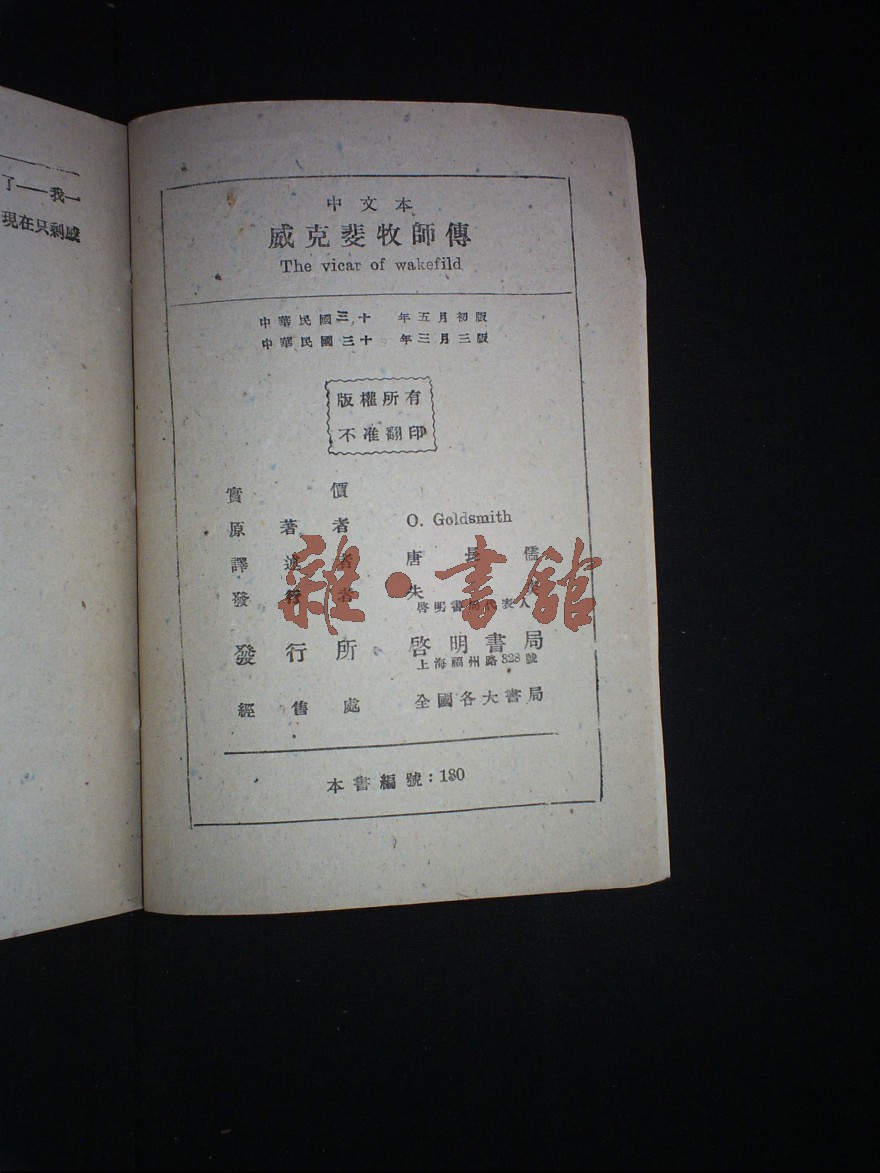 了——我一
現在只剩
中文本
威克斐牧師傳
The vicar of wakefild
中華民國三十 年五月初版
中華民國三十 年三月三版
版權所有
不准翻印
實價
原著者 O. Goldsmith
譯述者 唐長儒
發行者 朱
啓明書局代表人
發行所 啓明書局
上海福州路328號
經售處 全國各大書局
本書編號：180
雜·書館